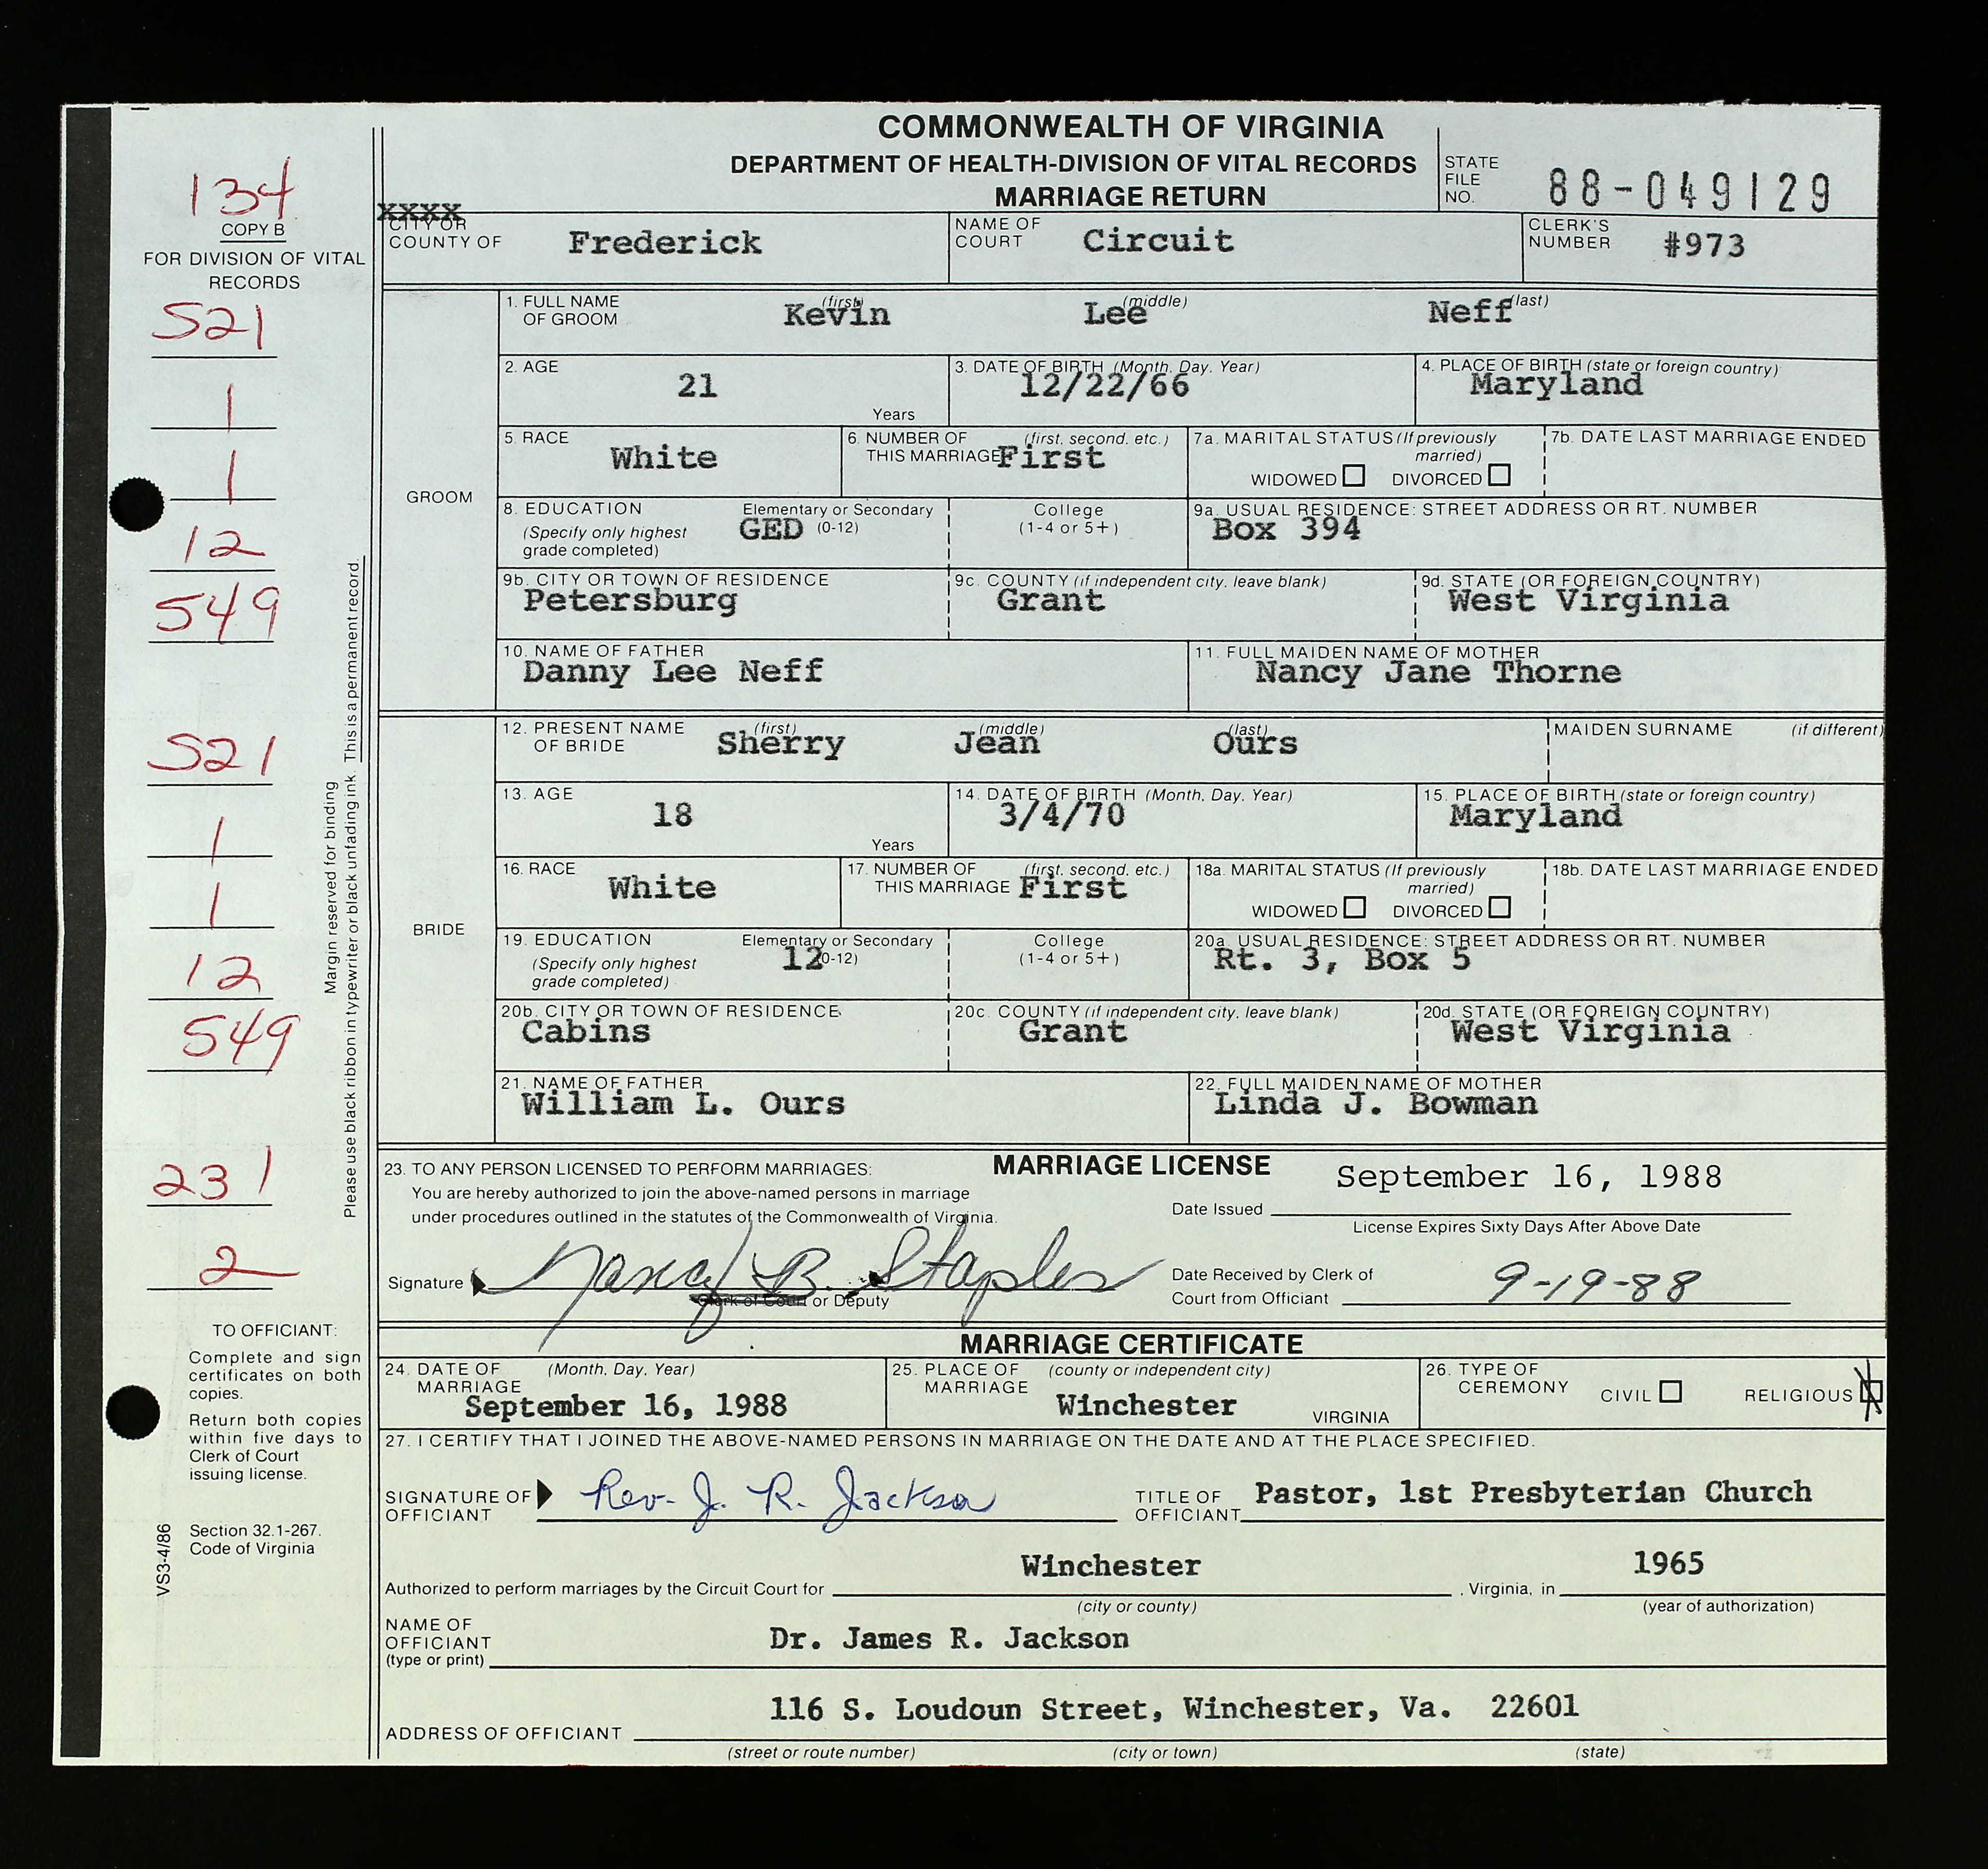 COMMONWEALTH OF VIRGINIA
DEPARTMENT OF HEALTH-DIVISION OF VITAL RECORDS
MARRIAGE RETURN
STATE FILE NO. 88-049129
134
COPY B
FOR DIVISION OF VITAL RECORDS
XXXX
CITY OR COUNTY OF Frederick
NAME OF COURT Circuit
CLERK'S NUMBER #973
521
1
1
12
549
521
1
1
12
549
231
2
Margin reserved for binding
Please use black ribbon in typewriter or black unfading ink. This is a permanent record.
GROOM
1. FULL NAME OF GROOM (first) Kevin (middle) Lee (last) Neff
2. AGE 21 Years
3. DATE OF BIRTH (Month, Day, Year) 12/22/66
4. PLACE OF BIRTH (state or foreign country) Maryland
5. RACE White
6. NUMBER OF THIS MARRIAGE (first, second, etc.) First
7a. MARITAL STATUS (If previously married) WIDOWED DIVORCED
7b. DATE LAST MARRIAGE ENDED
8. EDUCATION (Specify only highest grade completed) Elementary or Secondary (0-12) GED College (1-4 or 5+)
9a. USUAL RESIDENCE: STREET ADDRESS OR RT. NUMBER Box 394
9b. CITY OR TOWN OF RESIDENCE Petersburg
9c. COUNTY (if independent city, leave blank) Grant
9d. STATE (OR FOREIGN COUNTRY) West Virginia
10. NAME OF FATHER Danny Lee Neff
11. FULL MAIDEN NAME OF MOTHER Nancy Jane Thorne
BRIDE
12. PRESENT NAME OF BRIDE (first) Sherry (middle) Jean (last) Ours
MAIDEN SURNAME (if different)
13. AGE 18 Years
14. DATE OF BIRTH (Month, Day, Year) 3/4/70
15. PLACE OF BIRTH (state or foreign country) Maryland
16. RACE White
17. NUMBER OF THIS MARRIAGE (first, second, etc.) First
18a. MARITAL STATUS (If previously married) WIDOWED DIVORCED
18b. DATE LAST MARRIAGE ENDED
19. EDUCATION (Specify only highest grade completed) Elementary or Secondary (0-12) 12 College (1-4 or 5+)
20a. USUAL RESIDENCE: STREET ADDRESS OR RT. NUMBER Rt. 3, Box 5
20b. CITY OR TOWN OF RESIDENCE Cabins
20c. COUNTY (if independent city, leave blank) Grant
20d. STATE (OR FOREIGN COUNTRY) West Virginia
21. NAME OF FATHER William L. Ours
22. FULL MAIDEN NAME OF MOTHER Linda J. Bowman
MARRIAGE LICENSE
23. TO ANY PERSON LICENSED TO PERFORM MARRIAGES:
You are hereby authorized to join the above-named persons in marriage
under procedures outlined in the statutes of the Commonwealth of Virginia.
Date Issued September 16, 1988
License Expires Sixty Days After Above Date
Signature Nancy B. Staples
Clerk of Court or Deputy
Date Received by Clerk of Court from Officiant 9-19-88
MARRIAGE CERTIFICATE
24. DATE OF MARRIAGE (Month, Day, Year) September 16, 1988
25. PLACE OF MARRIAGE (county or independent city) Winchester VIRGINIA
26. TYPE OF CEREMONY CIVIL RELIGIOUS X
27. I CERTIFY THAT I JOINED THE ABOVE-NAMED PERSONS IN MARRIAGE ON THE DATE AND AT THE PLACE SPECIFIED.
SIGNATURE OF OFFICIANT Rev. J. R. Jackson
TITLE OF OFFICIANT Pastor, 1st Presbyterian Church
Authorized to perform marriages by the Circuit Court for Winchester, Virginia, in 1965
(city or county) (year of authorization)
NAME OF OFFICIANT (type or print) Dr. James R. Jackson
ADDRESS OF OFFICIANT 116 S. Loudoun Street, Winchester, Va. 22601
(street or route number) (city or town) (state)
TO OFFICIANT:
Complete and sign
certificates on both
copies.
Return both copies
within five days to
Clerk of Court
issuing license.
Section 32.1-267.
Code of Virginia
VS3-4/86